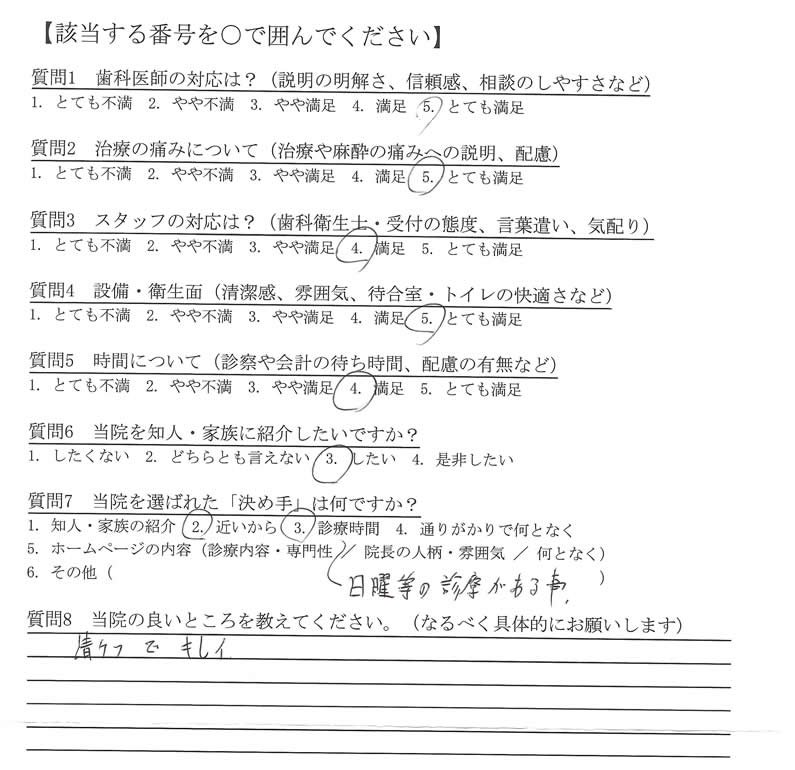 【該当する番号を○で囲んでください】
質問1 歯科医師の対応は？（説明の明解さ、信頼感、相談のしやすさなど）
1. とても不満 2. やや不満 3. やや満足 4. 満足 5. とても満足
質問2 治療の痛みについて（治療や麻酔の痛みへの説明、配慮）
1. とても不満 2. やや不満 3. やや満足 4. 満足 5. とても満足
質問3 スタッフの対応は？（歯科衛生士・受付の態度、言葉遣い、気配り）
1. とても不満 2. やや不満 3. やや満足 4. 満足 5. とても満足
質問4 設備・衛生面（清潔感、雰囲気、待合室・トイレの快適さなど）
1. とても不満 2. やや不満 3. やや満足 4. 満足 5. とても満足
質問5 時間について（診察や会計の待ち時間、配慮の有無など）
1. とても不満 2. やや不満 3. やや満足 4. 満足 5. とても満足
質問6 当院を知人・家族に紹介したいですか？
1. したくない 2. どちらとも言えない 3. したい 4. 是非したい
質問7 当院を選ばれた「決め手」は何ですか？
1. 知人・家族の紹介 2. 近いから 3. 診療時間 4. 通りがかりで何となく
5. ホームページの内容（診療内容・専門性 ／ 院長の人柄・雰囲気 ／ 何となく）
6. その他（ 日曜等の診療がある事。 ）
質問8 当院の良いところを教えてください。（なるべく具体的にお願いします）
清ケツで キレイ